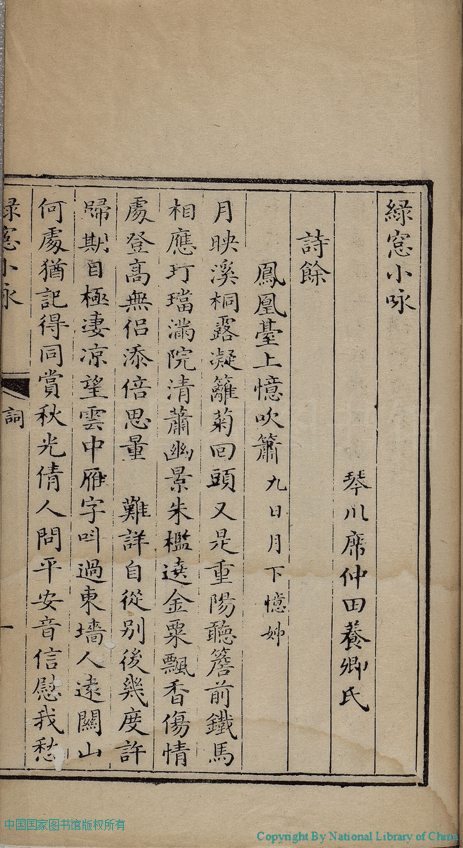 綠窓小咏
琴川席仲田養卿氏
詩餘
鳳凰臺上憶吹簫 九日月下憶姊
月映溪桐露凝籬菊回頭又是重陽聽簷前鐵馬
相應玎璫滿院清蕭幽景朱檻遶金粟飄香傷情
處登高無侶添倍思量 難詳自從别後幾度許
歸期目極凄凉望雲中雁字叫過東墻人遠關山
何處猶記得同賞秋光倩人問平安音信慰我愁
綠窓小咏
詞
一
中国国家图书馆版权所有
Copyright By National Library of China